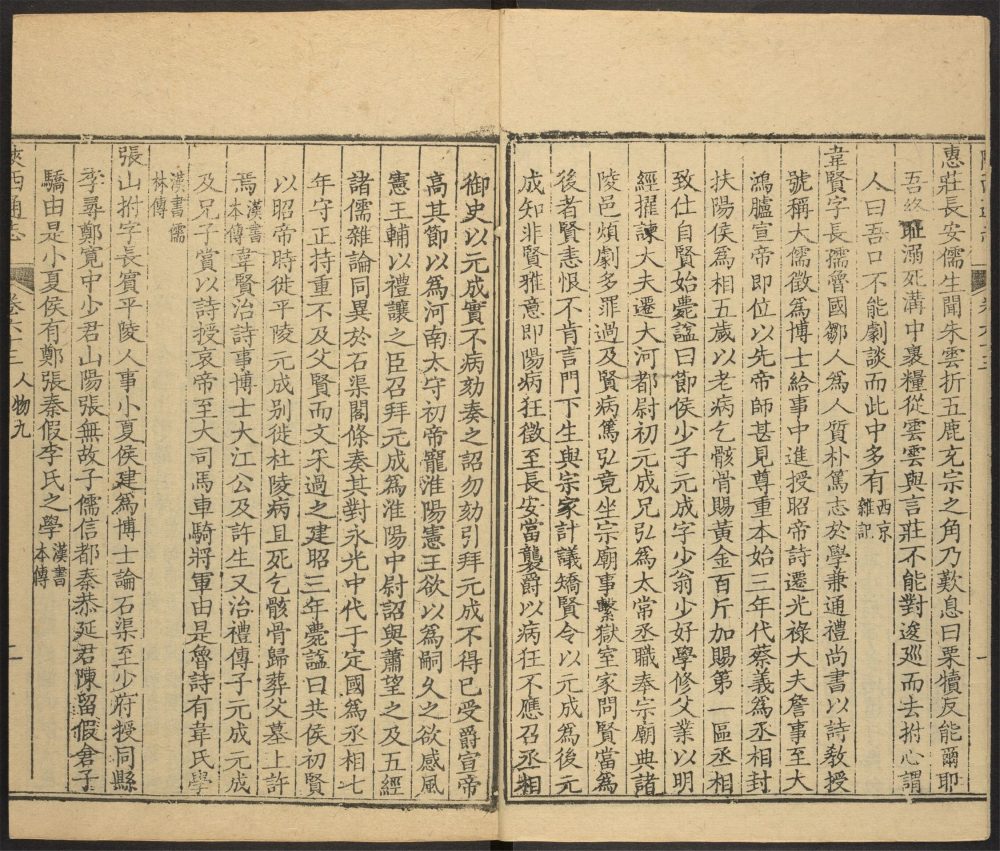 惠莊長安儒生聞朱雲折五鹿充宗之角乃歎息曰栗犢反能爾耶
吾終耻溺死溝中裹糧從雲雲與言莊不能對逡廵而去拊心謂
人曰吾口不能劇談而此中多有西京雜記
韋賢字長孺魯國鄒人爲人質朴篤志於學兼通禮尚書以詩教授
號稱大儒徵爲博士給事中進授昭帝詩遷光祿大夫詹事至大
鴻臚宣帝即位以先帝師甚見尊重本始三年代蔡義爲丞相封
扶陽侯爲相五歲以老病乞骸骨賜黃金百斤加賜第一區丞相
致仕自賢始薨謚曰節侯少子元成字少翁少好學修父業以明
經擢諫大夫遷大河都尉初元成兄弘爲太常丞職奉宗廟典諸
陵邑煩劇多罪過及賢病篤弘竟坐宗廟事繫獄室家問賢當爲
後者賢恚恨不肯言門下生與宗家計議矯賢令以元成爲後元
成知非賢雅意即陽病狂徵至長安當襲爵以病狂不應召丞相
御史以元成實不病劾奏之詔勿劾引拜元成不得已受爵宣帝
高其節以爲河南太守初帝寵淮陽憲王欲以爲嗣久之欲感風
憲王輔以禮讓之臣召拜元成爲淮陽中尉詔與蕭望之及五經
諸儒雜論同異於石渠閣條奏其對永光中代于定國爲丞相七
年守正持重不及父賢而文采過之建昭三年薨謚曰共侯初賢
以昭帝時徙平陵元成别徙杜陵病且死乞骸骨歸葬父墓上許
焉漢書本傳韋賢治詩事博士大江公及許生又治禮傳子元成元成
及兄子賞以詩授哀帝至大司馬車騎將軍由是魯詩有韋氏學
漢書儒林傳
張山拊字長賓平陵人事小夏侯建爲博士論石渠至少府授同縣
李尋鄭寬中少君山陽張無故子儒信都秦恭延君陳留假倉子
驕由是小夏侯有鄭張秦假李氏之學漢書本傳
陜西通志
卷六十三
人物九
一